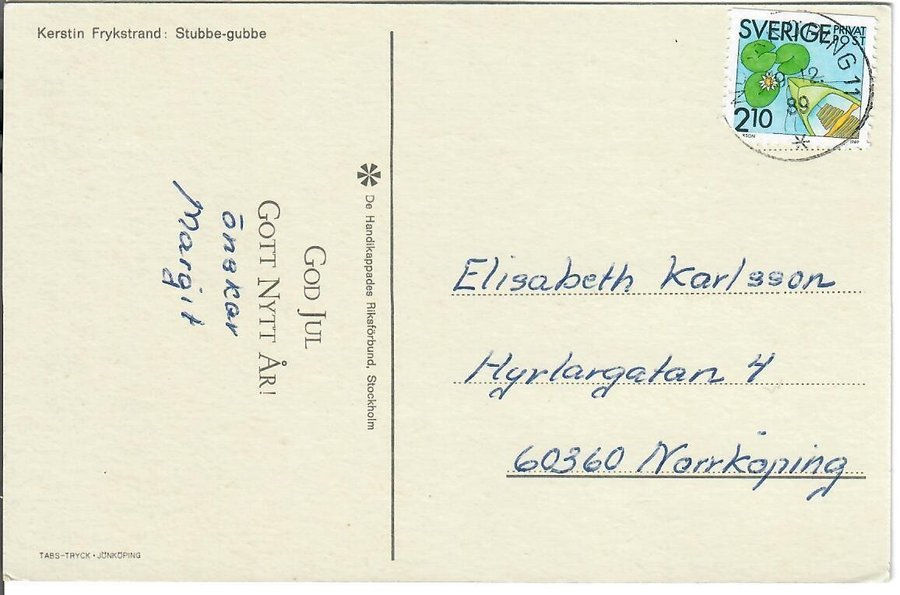 Kerstin Frykstrand: Stubbe-gubbe
SVERIGE
PRIVAT
POST
2.10
PING 11
9.12.
89
De Handikappades Riksförbund, Stockholm
GOD JUL
GOTT NYTT ÅR!
önskar
Margit
Elisabeth Karlsson
Hyrlargatan 4
60360 Norrköping
TABS-TRYCK • JÖNKÖPING